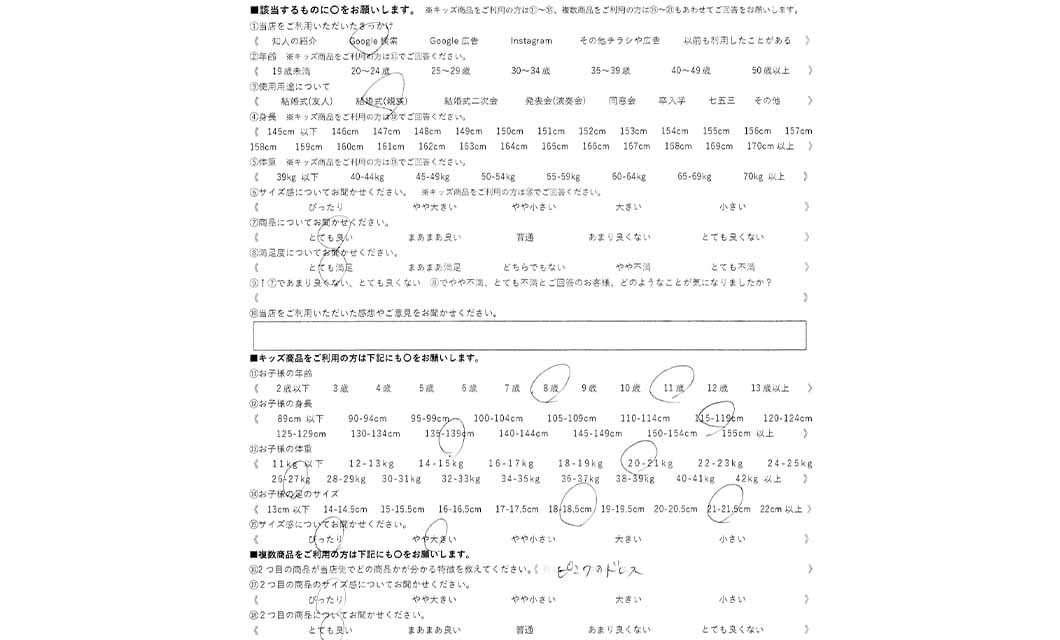 ■該当するものに〇をお願いします。 ※キッズ商品をご利用の方は⑪～⑮、複数商品をご利用の方は⑯～⑳もあわせてご回答をお願いします。
①当店をご利用いただいたきっかけ
《 知人の紹介 Google 検索 Google 広告 Instagram その他チラシや広告 以前も利用したことがある 》
②年齢 ※キッズ商品をご利用の方は⑪でご回答ください。
《 19歳未満 20～24歳 25～29歳 30～34歳 35～39歳 40～49歳 50歳以上 》
③使用用途について
《 結婚式(友人) 結婚式(親族) 結婚式二次会 発表会(演奏会) 同窓会 卒入学 七五三 その他 》
④身長 ※キッズ商品をご利用の方は⑫でご回答ください。
《 145cm 以下 146cm 147cm 148cm 149cm 150cm 151cm 152cm 153cm 154cm 155cm 156cm 157cm
158cm 159cm 160cm 161cm 162cm 163cm 164cm 165cm 166cm 167cm 168cm 169cm 170cm 以上 》
⑤体重 ※キッズ商品をご利用の方は⑬でご回答ください。
《 39kg 以下 40-44kg 45-49kg 50-54kg 55-59kg 60-64kg 65-69kg 70kg 以上 》
⑥サイズ感についてお聞かせください。 ※キッズ商品をご利用の方は⑮でご回答ください。
《 ぴったり やや大きい やや小さい 大きい 小さい 》
⑦商品についてお聞かせください。
《 とても良い まあまあ良い 普通 あまり良くない とても良くない 》
⑧満足度についてお聞かせください。
《 とても満足 まあまあ満足 どちらでもない やや不満 とても不満 》
⑨↑⑦であまり良くない、とても良くない ⑧でやや不満、とても不満とご回答のお客様、どのようなことが気になりましたか？
《 》
⑩当店をご利用いただいた感想やご意見をお聞かせください。
■キッズ商品をご利用の方は下記にも〇をお願いします。
⑪お子様の年齢
《 2歳以下 3歳 4歳 5歳 6歳 7歳 8歳 9歳 10歳 11歳 12歳 13歳以上 》
⑫お子様の身長
《 89cm 以下 90-94cm 95-99cm 100-104cm 105-109cm 110-114cm 115-119cm 120-124cm
125-129cm 130-134cm 135-139cm 140-144cm 145-149cm 150-154cm 155cm 以上 》
⑬お子様の体重
《 11kg 以下 12-13kg 14-15kg 16-17kg 18-19kg 20-21kg 22-23kg 24-25kg
26-27kg 28-29kg 30-31kg 32-33kg 34-35kg 36-37kg 38-39kg 40-41kg 42kg 以上 》
⑭お子様の足のサイズ
《 13cm 以下 14-14.5cm 15-15.5cm 16-16.5cm 17-17.5cm 18-18.5cm 19-19.5cm 20-20.5cm 21-21.5cm 22cm 以上 》
⑮サイズ感についてお聞かせください。
《 ぴったり やや大きい やや小さい 大きい 小さい 》
■複数商品をご利用の方は下記にも〇をお願いします。
⑯2つ目の商品が当店側でどの商品かが分かる特徴を教えてください。《 ピンクのドレス 》
⑰2つ目の商品のサイズ感についてお聞かせください。
《 ぴったり やや大きい やや小さい 大きい 小さい 》
⑱2つ目の商品についてお聞かせください。
《 とても良い まあまあ良い 普通 あまり良くない とても良くない 》